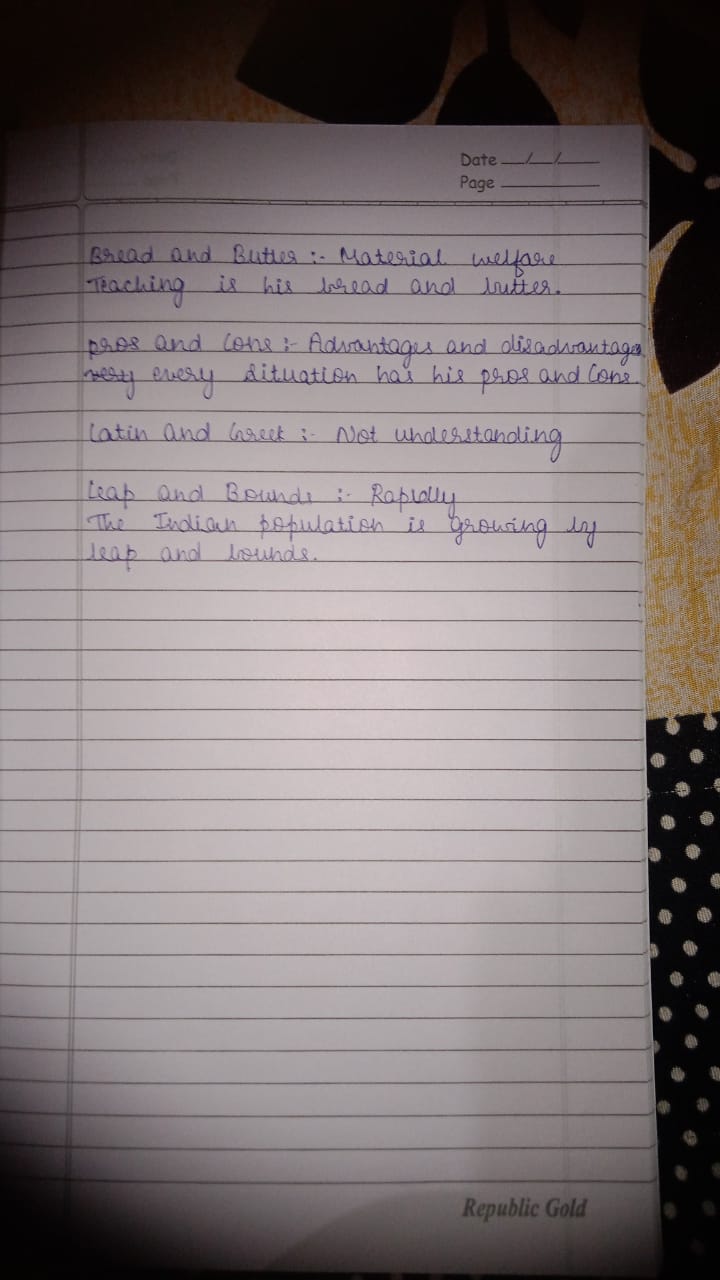 Date __/__/__
Page
Bread and Butter :- Material welfare
Teaching is his bread and butter.
pros and Cons :- Advantages and disadvantages
very every situation has his pros and Cons.
Latin and Greek :- Not understanding
Leap and Bounds :- Rapidly
The Indian population is growing by
leap and bounds.
Republic Gold